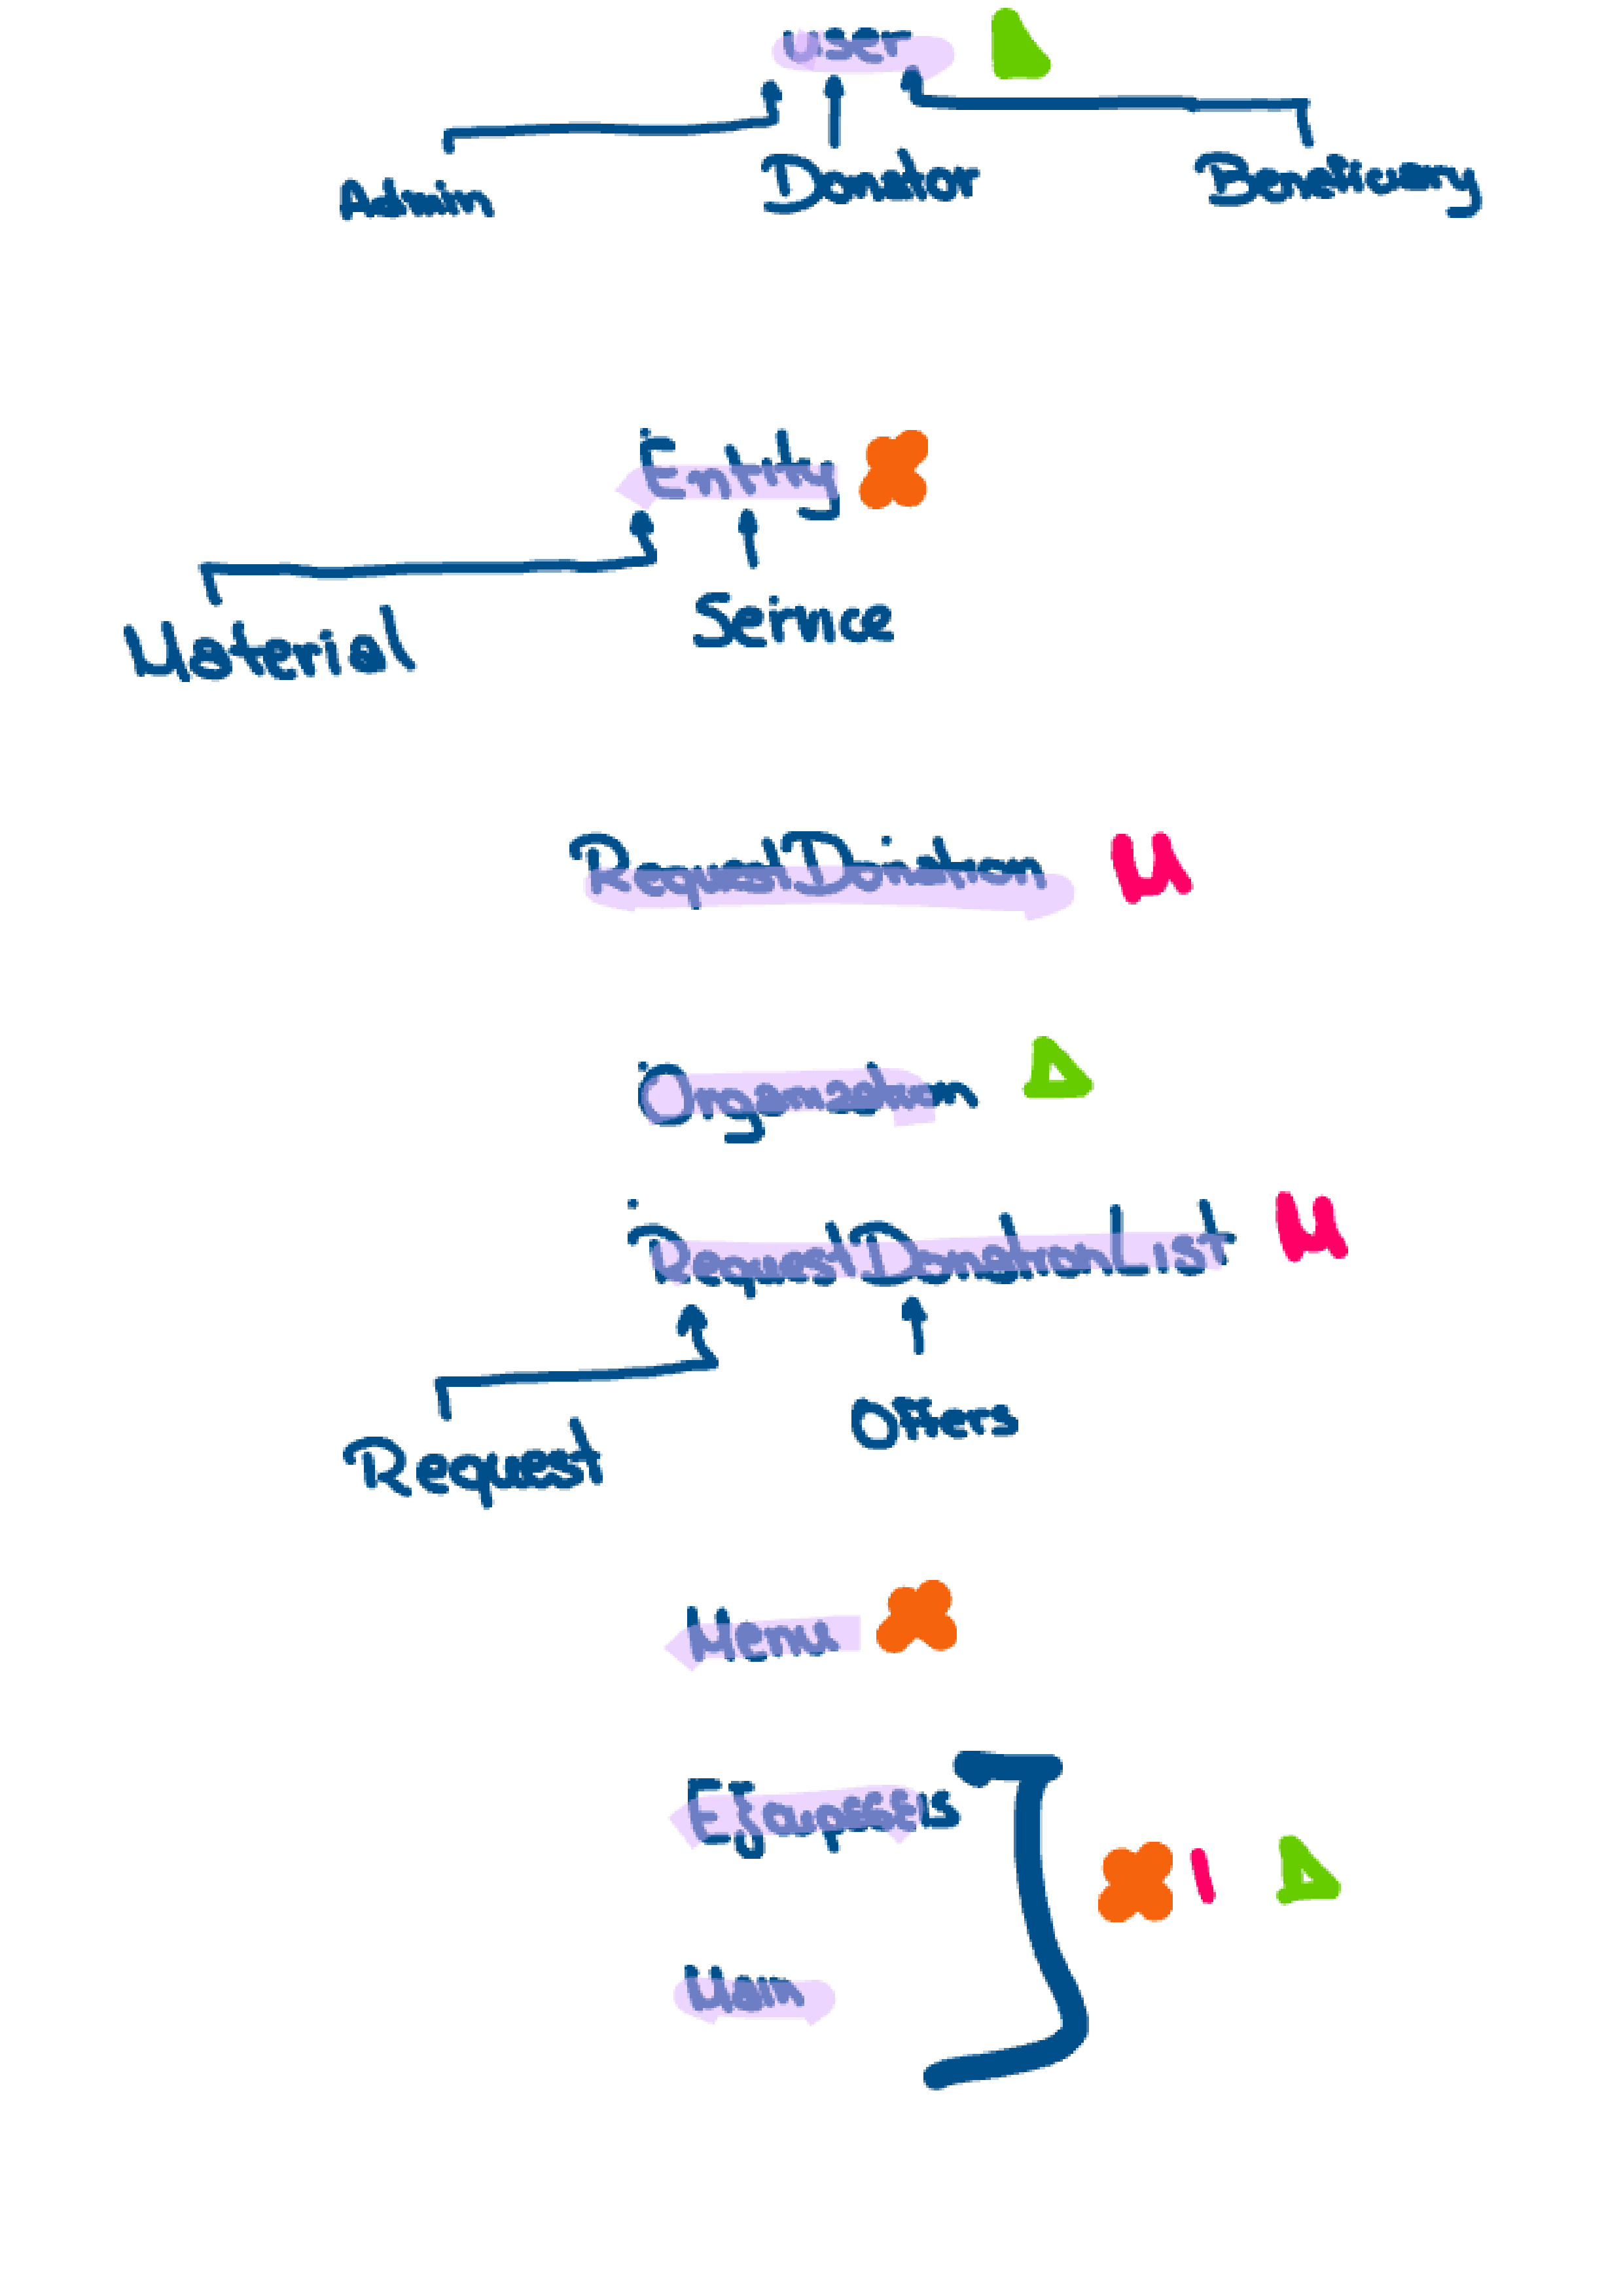 user Δ
Admin Donator Beneficiary
Entity X
Material Service
RequestDonation M
Organization Δ
RequestDonationList M
Request Offers
Menu X
Εξαιρέσεις
X Δ
Main